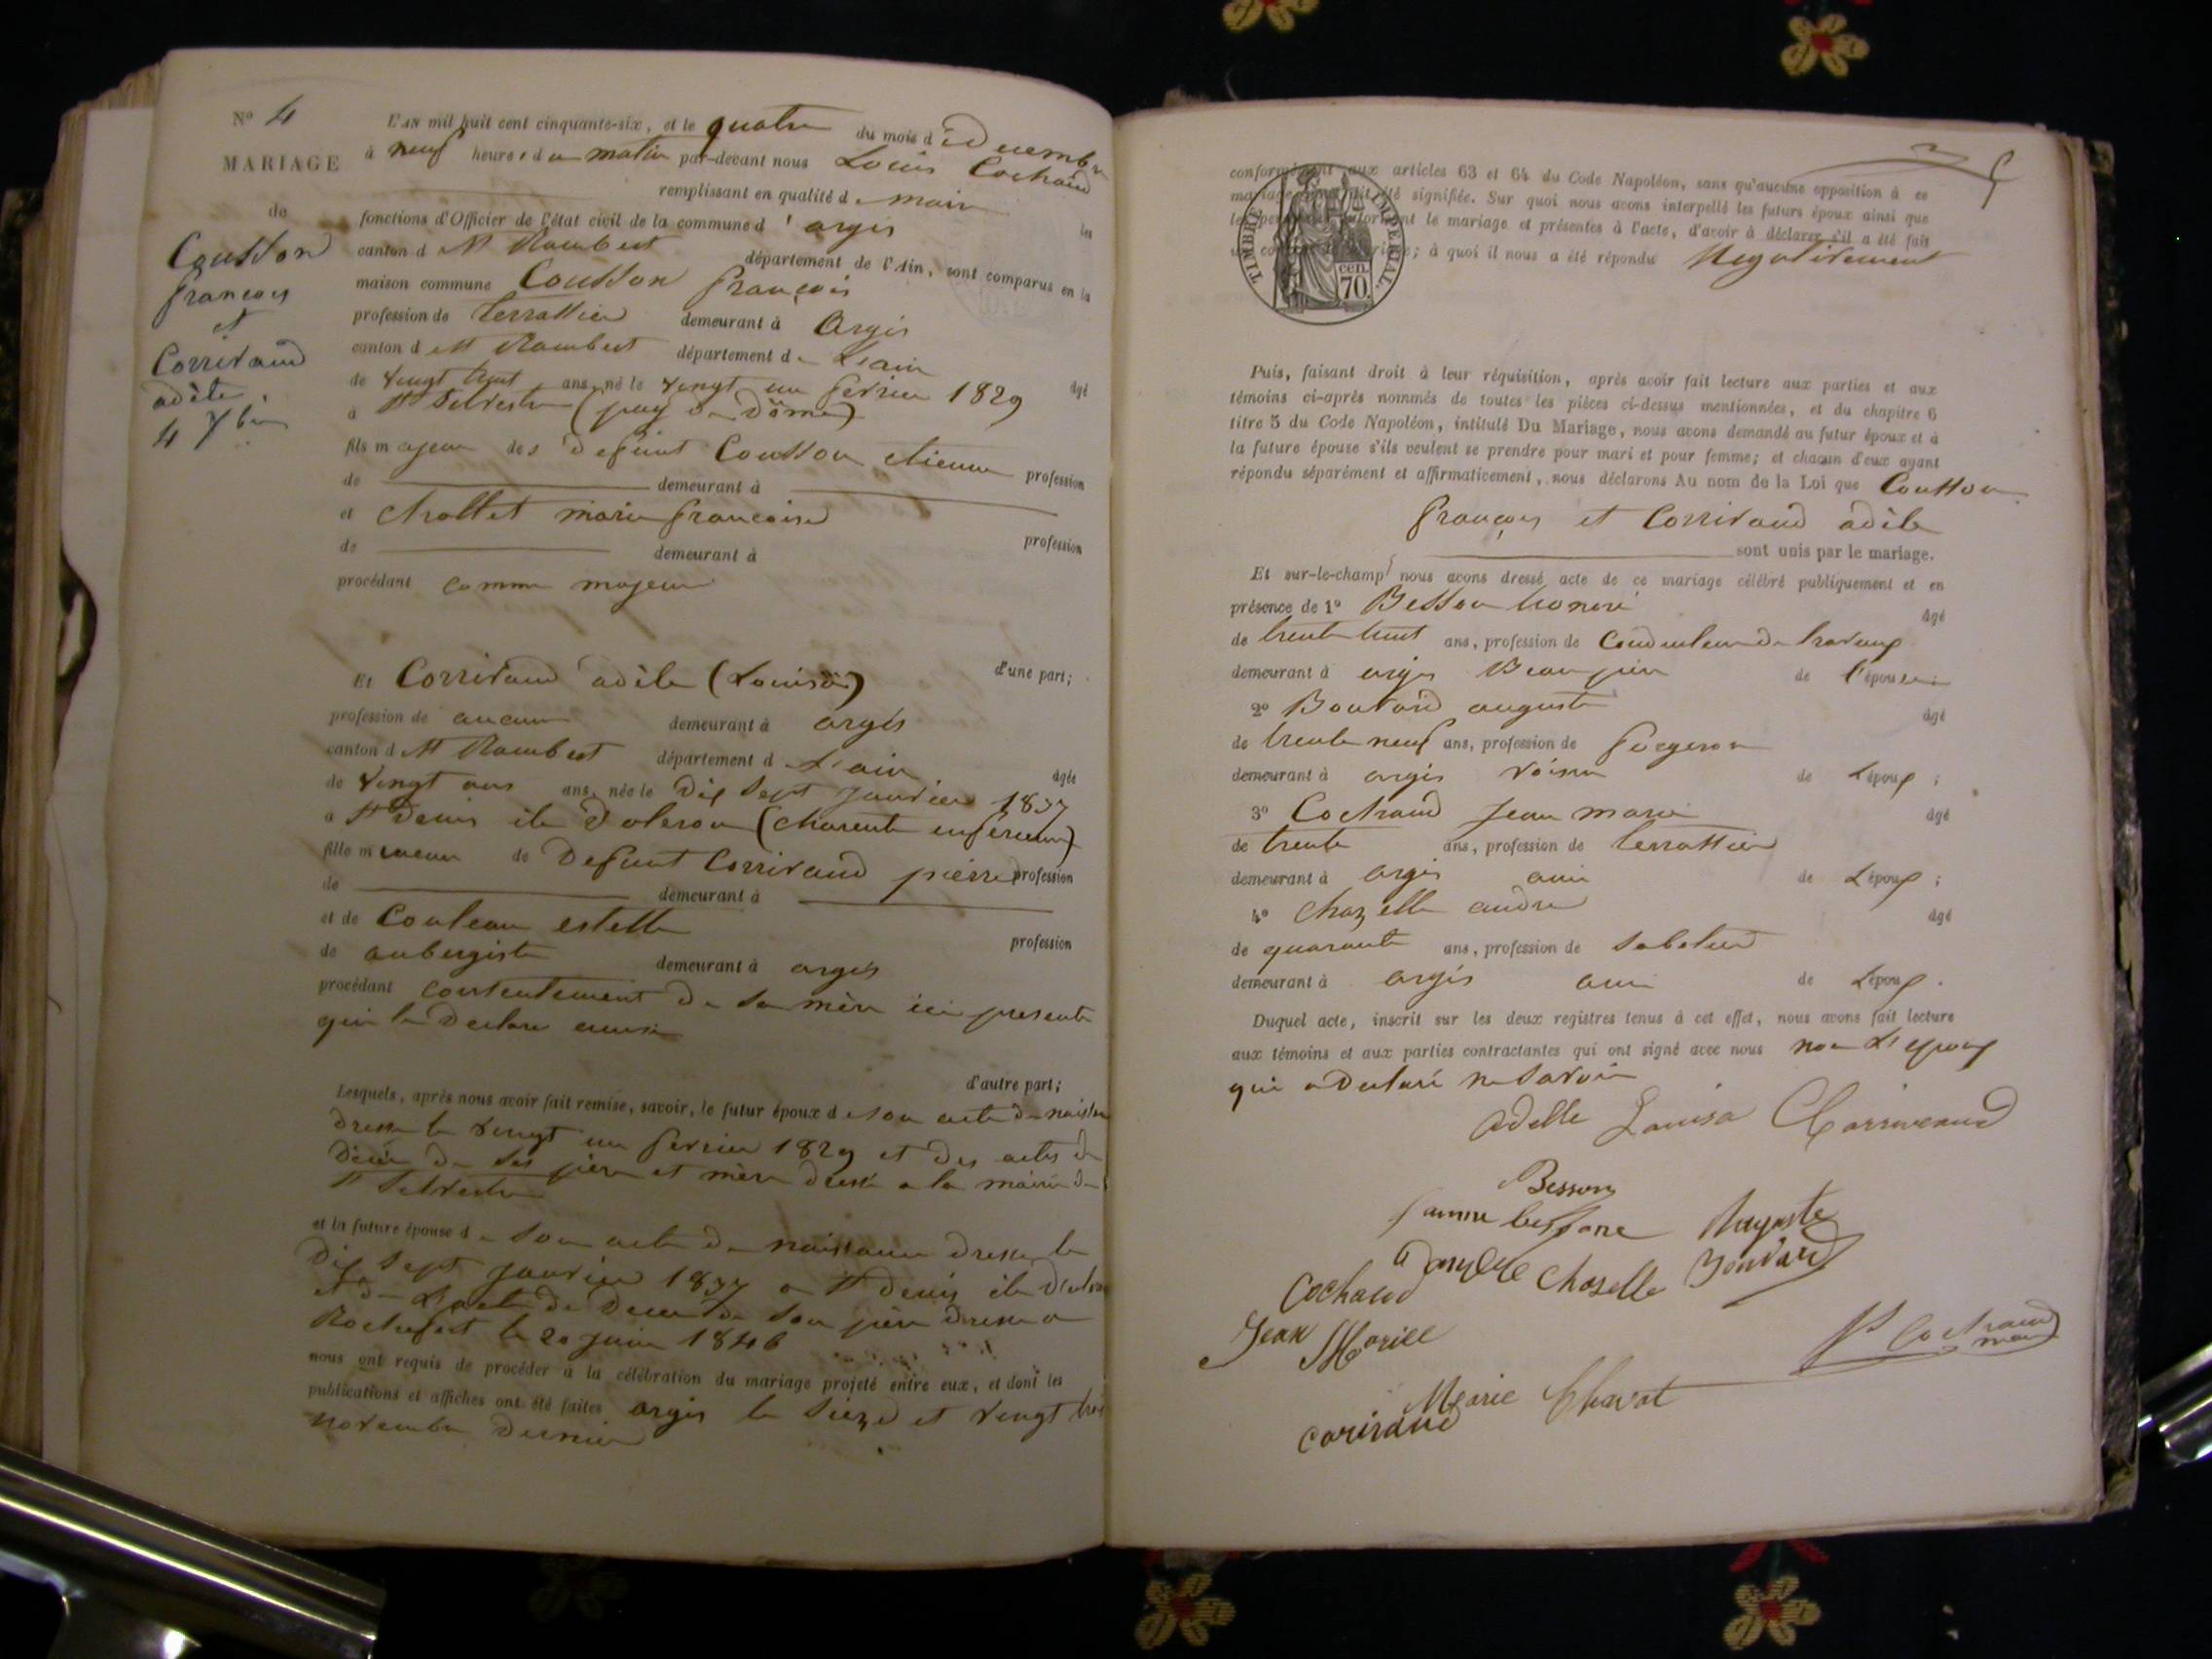 N° 4
MARIAGE
de
Cousson
françois
et
Corrivaud
adèle
4 Xbre
L'AN mil huit cent cinquante-six, et le quatre du mois de Decembre
à neuf heures du matin par-devant nous Louis Cochaud
remplissant en qualité de maire les
fonctions d'Officier de l'état civil de la commune d'argis
canton de St Rambert département de l'Ain, sont comparus en la
maison commune Cousson françois
profession de terrassier demeurant à Argis
canton de St Rambert département de L'ain âgé
de vingt huit ans, né le vingt un fevrier 1829
à St Silvestre (puy de Dôme)
fils majeur des defunt Cousson etienne profession
de demeurant à
et chollet marie françoise profession
de demeurant à
procédant comme majeur
d'une part;
Et Corrivaud adèle (Louisa)
profession de aucune demeurant à argis
canton de St Rambert département de L'ain âgée
de vingt ans ans, née le dix sept janvier 1837
à St Denis ile D'oleron (charente inférieure)
fille mineure de Defunt Corrivaud pierre profession
de demeurant à
et de Couleau estelle profession
de aubergiste demeurant à argis
procédant consentement de sa mère ici presente
qui le Declare aussi
d'autre part;
Lesquels, après nous avoir fait remise, savoir, le futur époux de son acte de naissance
dressé le vingt un fevrier 1829 et des actes de
décés de ses père et mère dressé a la mairie de
St Silvestre
et la future épouse de son acte de naissance dressé le
dix sept janvier 1837 a St Denis ile d'oleron
et de L'acte de Décès de son père dressé a
Rochefort le 20 juin 1846
nous ont requis de procéder à la célébration du mariage projeté entre eux, et dont les
publications et affiches ont été faites argis le seize et vingt trois
novembre dernier
conformément aux articles 63 et 64 du Code Napoléon, sans qu'aucune opposition à ce
mariage nous ait été signifiée. Sur quoi nous avons interpellé les futurs époux ainsi que
les personnes autorisant le mariage et présentes à l'acte, d'avoir à déclarer s'il a été fait
un contrat de mariage; à quoi il nous a été répondu Negativement
TIMBRE IMPERIAL
70 cen.
Puis, faisant droit à leur réquisition, après avoir fait lecture aux parties et aux
témoins ci-après nommés de toutes les pièces ci-dessus mentionnées, et du chapitre 6
titre 5 du Code Napoléon, intitulé Du Mariage, nous avons demandé au futur époux et à
la future épouse s'ils veulent se prendre pour mari et pour femme; et chacun d'eux ayant
répondu séparément et affirmativement, nous déclarons Au nom de la Loi que Cousson
françois et Corrivaud adèle
sont unis par le mariage.
Et sur-le-champ nous avons dressé acte de ce mariage célébré publiquement et en
présence de 1° Besson honoré âgé
de trente huit ans, profession de Conducteur de travaux
demeurant à argis Beau père de l'épouse;
2° Bouvard auguste âgé
de trente neuf ans, profession de forgeron
demeurant à argis voisin de L'époux;
3° Cochaud Jean marie âgé
de trente ans, profession de terrassier
demeurant à argis ami de L'époux;
4° Chazelle andré âgé
de quarante ans, profession de sabotier
demeurant à argis ami de L'époux.
Duquel acte, inscrit sur les deux registres tenus à cet effet, nous avons fait lecture
aux témoins et aux parties contractantes qui ont signé avec nous non L'epoux
qui a declaré ne savoir
Adelle Louisa Corriveaud
Besson
Auguste
Bouvard
Choselle
Cochaud
Jean Marie
Ls Cochaud
maire
Marie Chavot
Corivaud